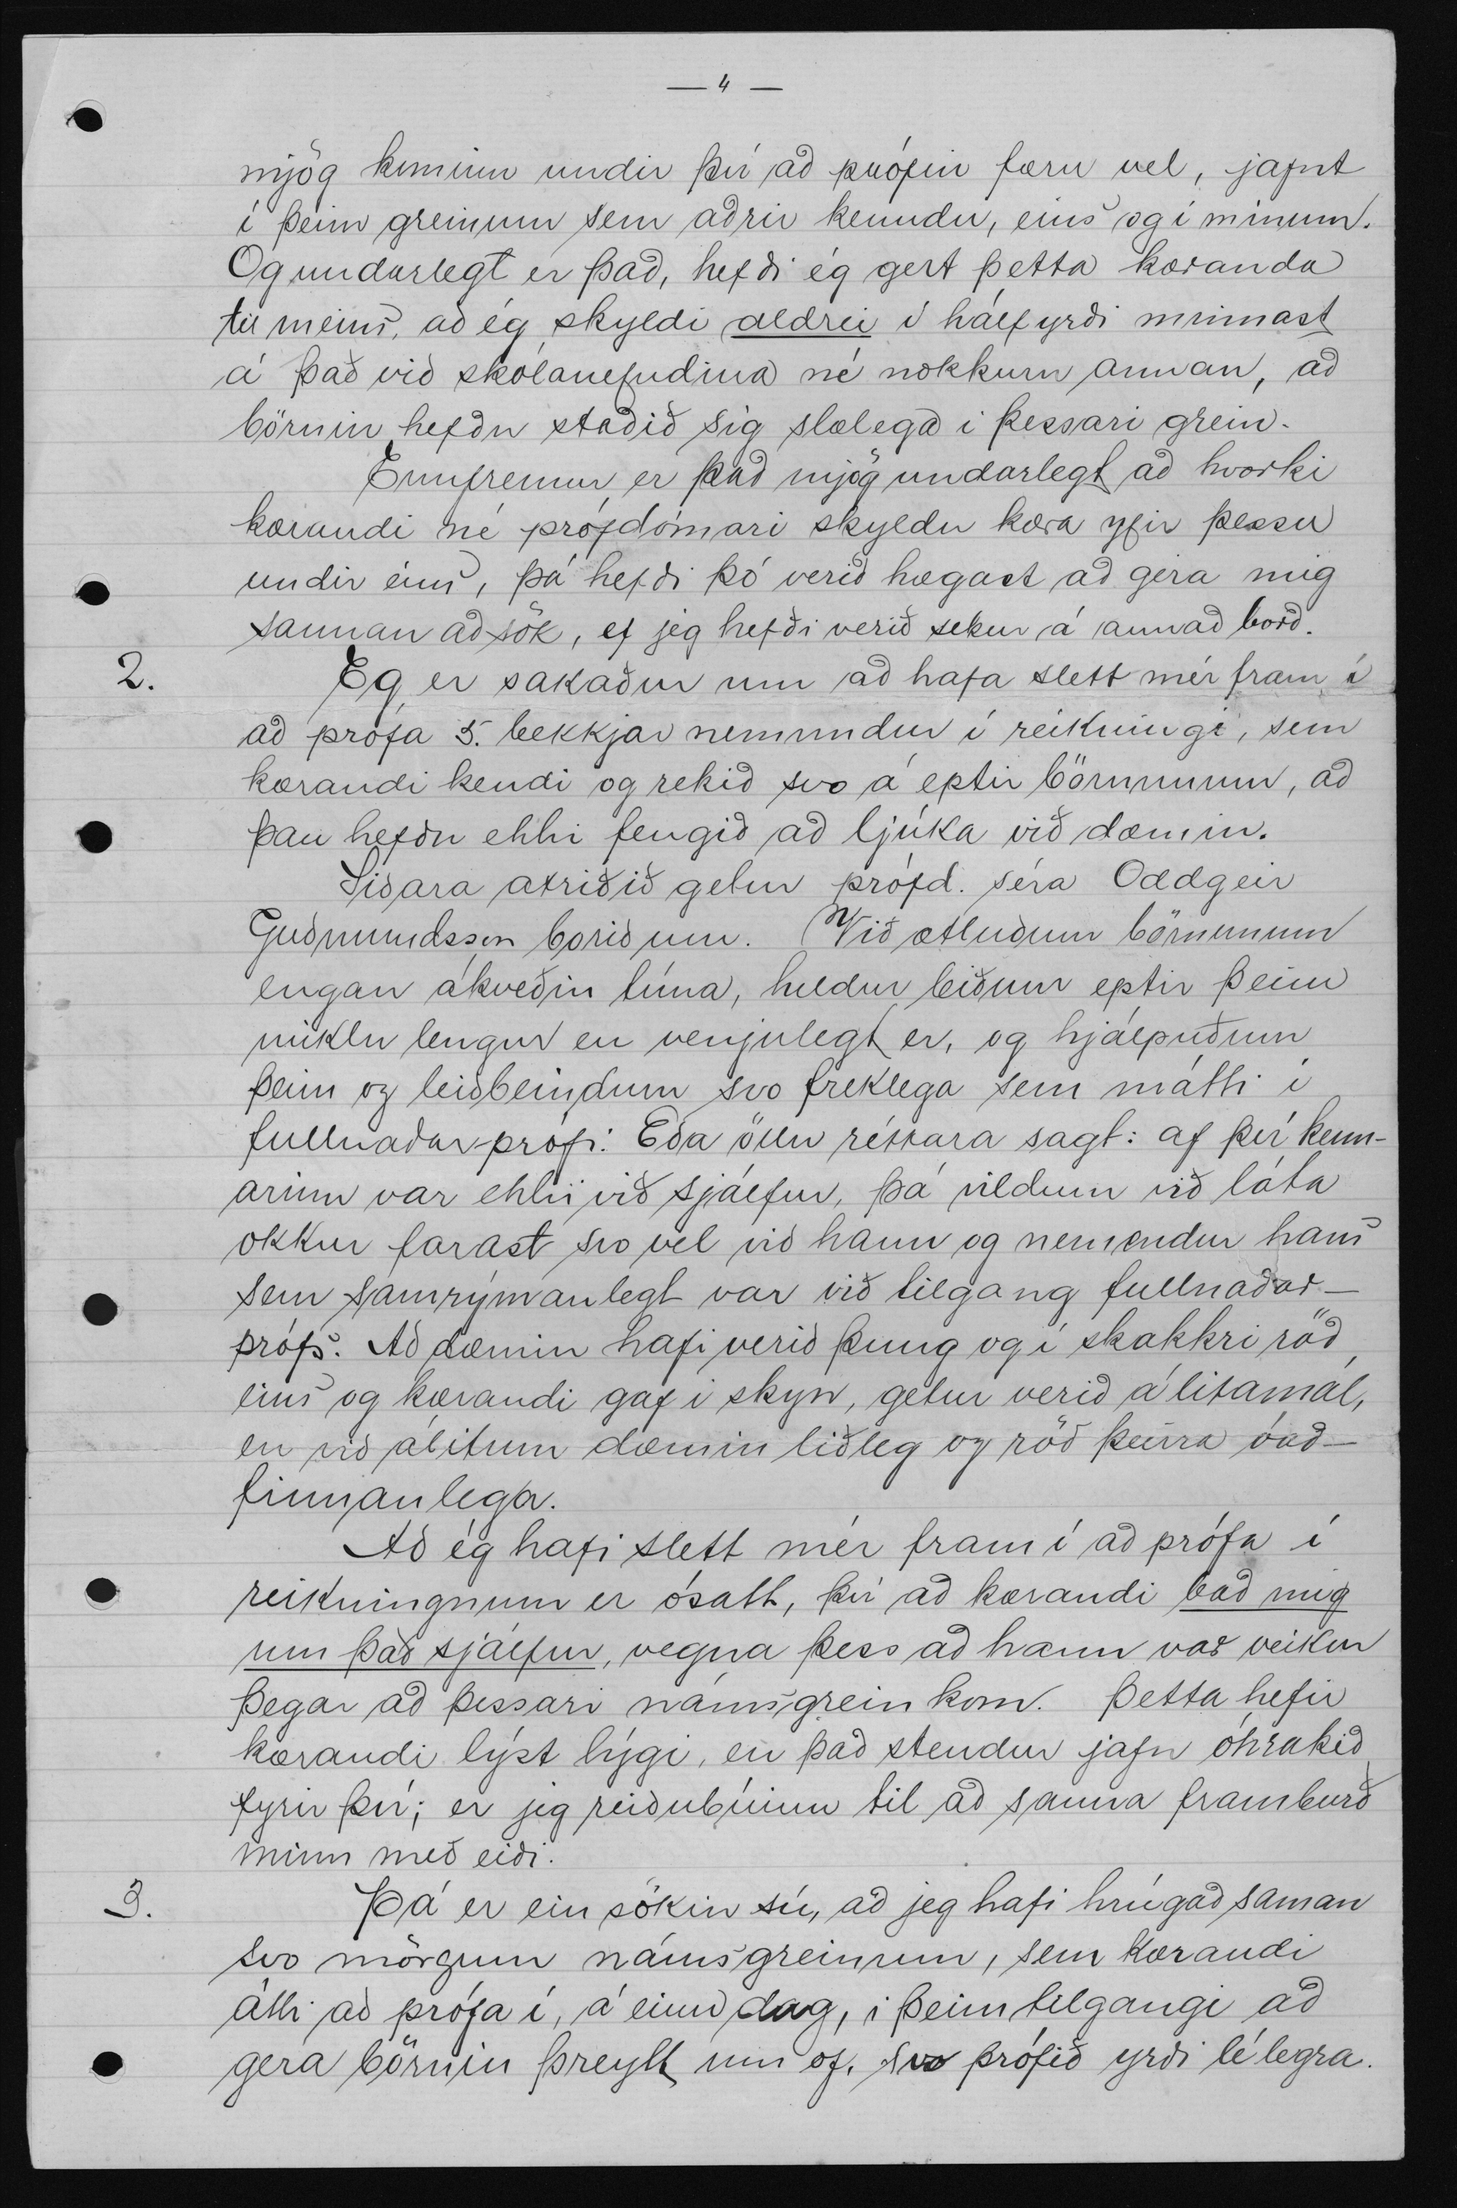 — 4 —
mjög kominn undir því að prófin færu vel, jafnt
í þeim greinum sem aðrir kenndu, eins og í mínum.
Og undarlegt er það, hefði ég gert þetta kæranda
til meins, að ég skyldi aldrei í hálfyrði minnast
á það við skólanefndina né nokkurn annan, að
börnin hefðu staðið sig slælega i þessari grein.
Ennfremur er það mjög undarlegt að hvorki
kærandi né prófdómari skyldu kæra yfir þessu
undir eins, þá hefði þó verið hægast að gera mig
sannan að sök, ef jeg hefði verið sekur á annað borð.
2. Eg er sakaður um að hafa slett mér fram í
að prófa 5. bekkjar nemundur í reikningi, sem
kærandi kendi og rekið svo á eptir börnunum, að
þau hefðu ekki fengið að ljúka við dæmin.
Síðara atriðið getur prófd. séra Oddgeir
Guðmundsson borið um. Við ætluðum börnunum
engan ákveðin tíma, heldur biðum eptir þeim
miklu lengur en venjulegt er, og hjálpuðum
þeim og leiðbeindum svo freklega sem mátti í
fullnaðarprófi. Eða öllu réttara sagt: af því kenn-
arinn var ekki við sjálfur, þá vildum við láta
okkur farast svo vel við hann og nemendur hans
sem samrýmanlegt var við tilgang fullnaðar-
prófs. Að dæmin hafi verið þung og í skakkri röð,
eins og kærandi gaf i skyn, getur verið álitamál,
en við álitum dæmin liðleg og röð þeirra óað-
finnanlega.
Að ég hafi slett mér fram í að prófa í
reikningnum er ósatt, því að kærandi bað mig
um það sjálfur, vegna þess að hann var veikur
þegar að þessari námsgrein kom. Þetta hefir
kærandi lýst lýgi, en það stendur jafn óhrakið
fyrir því; er jeg reiðubúinn til að sanna framburð
minn með eiði.
3. Þá er ein sökin sú, að jeg hafi hrúgað saman
svo mörgum námsgreinum, sem kærandi
átti að prófa í, á einn dag, i þeim tilgangi að
gera börnin þreytt um of, svo prófið yrði lélegra.